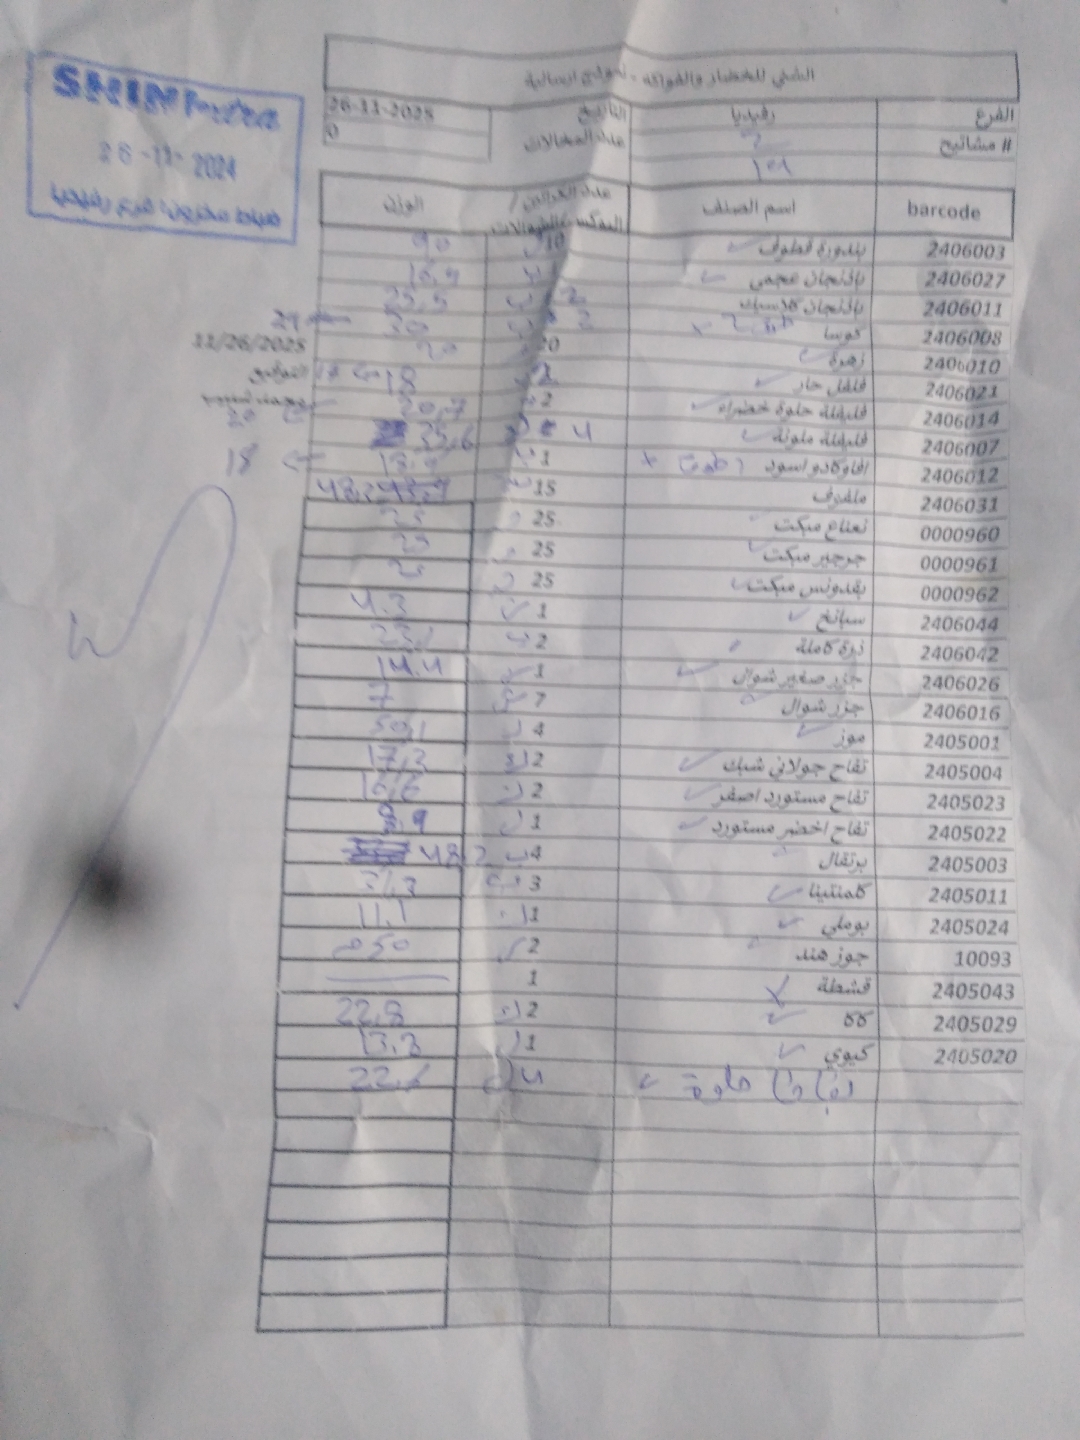 الشني للخضار والفواكه - نموذج ارسالية
الفرع رفيديا التاريخ 26-11-2025
# مشاتيح 2 عدد المخالات 0
SHINI
26-11-2024
barcode اسم الصنف عدد الكراتين / البوكس الوزن
2406003 بندورة قطوف 10 90
2406027 باذنجان عجمي 1 16,9
2406011 باذنجان كلاسيك 2 25,5
2406008 كوسا 2 30 29
2406010 زهرة 20 20
11/26/2025
2406021 فلفل حار 2 18
التوقيع
2406014 فليفلة حلوة خضراء 2 20,7 20
2406007 فليفلة ملونة 4 35,6
2406012 افاوكادو اسود 1 18 18
2406031 ملفوف 15 48,2
0000960 نعناع مبكت 25 25
0000961 جرجير مبكت 25 25
0000962 بقدونس مبكت 25
2406044 سبانخ 1 4.3
2406042 ذرة كاملة 2 23,1
2406026 جزر صغير شوال 1 14.4
2406016 جزر شوال 7 7
2405001 موز 4 50,1
2405004 تفاح جولاني شبك 2 17,3
2405023 تفاح مستورد اصفر 2 16,6
2405022 تفاح اخضر مستورد 1 8,9
2405003 برتقال 4 48,2
2405011 كلمنتينا 3 31,3
2405024 بوملي 1 11,1
10093 جوز هند 2 50
2405043 قشطة 1
2405029 كاكا 2 22,8
2405020 كيوي 1 13.3
حلوة 4 22,6